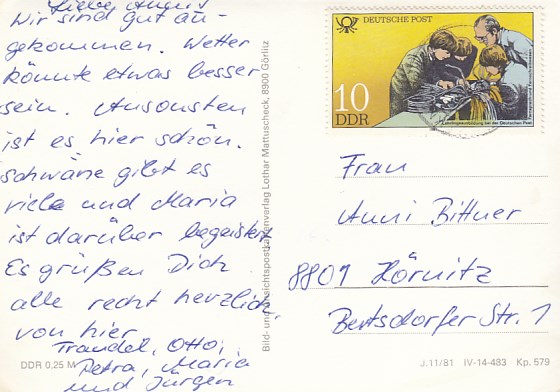 Liebe
Wir sind gut an-
gekommen. Wetter
könnte etwas besser
sein. Ansonsten
ist es hier schön.
schwäne gibt es
viele und Maria
ist darüber begeistert
Es grüßen Dich
alle recht herzlich,
von hier
Traudel, Otto,
Petra, Maria
und Jürgen
DDR 0,25 M
Bild- und Ansichtspostkartenverlag Lothar Mattuscheck, 8900 Görlitz
DEUTSCHE POST
10
DDR
Lehrlingsausbildung bei der Deutschen Post
Frau
Anni Bittner
8801 Hörnitz
Bertsdorfer Str. 1
J.11/81 IV-14-483 Kp. 579